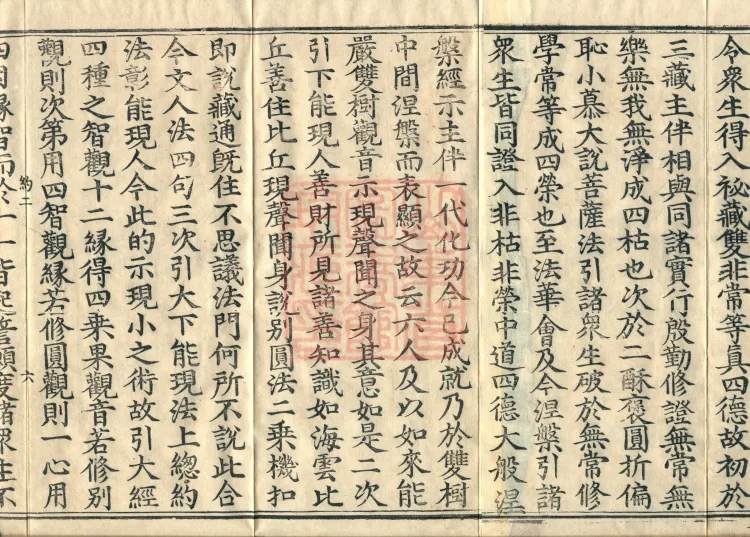 令衆生得入祕藏雙非常等真四德故初於
三藏主伴相與同諸實行殷勤修證無常無
樂無我無淨成四枯也次於二酥褒圓折偏
恥小慕大說菩薩法引諸衆生破於無常修
學常等成四榮也至法華會及今涅槃引諸
衆生皆同證入非枯非榮中道四德大般涅
槃經示主伴一代化功今已成就乃於雙樹
中間涅槃而表顯之故云六人及以如來能
嚴雙樹觀音示現聲聞之身其意如是二次
引下能現人善財所見諸善知識如海雲比
丘善住比丘現聲聞身說別圓法二乘機扣
即說藏通旣住不思議法門何所不說此合
今文人法四句三次引大下能現法上緫約
法彰能現人今此的示現小之術故引大經
四種之智觀十二緣得四乘果觀音若修別
觀則次第用四智觀緣若修圓觀則一心用
約二
六
四因緣智而於一一皆起誓願度諸衆生不